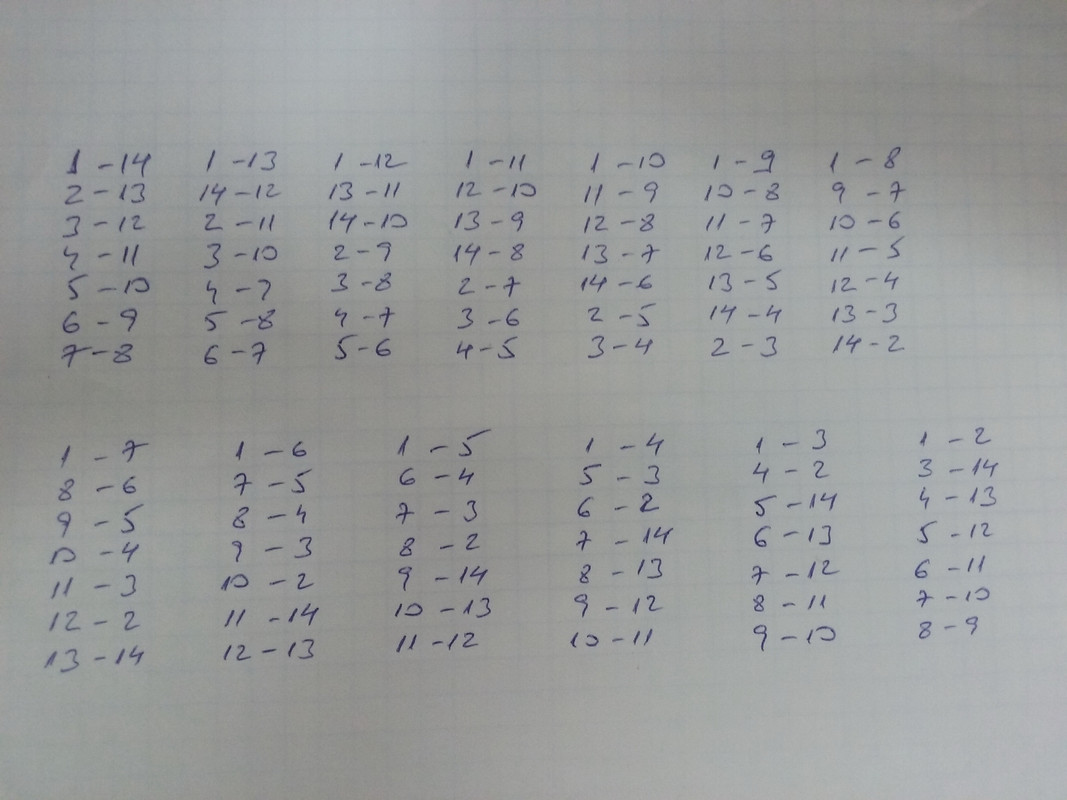 1 - 14 1 - 13 1 - 12 1 - 11 1 - 10 1 - 9 1 - 8
2 - 13 14 - 12 13 - 11 12 - 10 11 - 9 10 - 8 9 - 7
3 - 12 2 - 11 14 - 10 13 - 9 12 - 8 11 - 7 10 - 6
4 - 11 3 - 10 2 - 9 14 - 8 13 - 7 12 - 6 11 - 5
5 - 10 4 - 9 3 - 8 2 - 7 14 - 6 13 - 5 12 - 4
6 - 9 5 - 8 4 - 7 3 - 6 2 - 5 14 - 4 13 - 3
7 - 8 6 - 7 5 - 6 4 - 5 3 - 4 2 - 3 14 - 2
1 - 7 1 - 6 1 - 5 1 - 4 1 - 3 1 - 2
8 - 6 7 - 5 6 - 4 5 - 3 4 - 2 3 - 14
9 - 5 8 - 4 7 - 3 6 - 2 5 - 14 4 - 13
10 - 4 9 - 3 8 - 2 7 - 14 6 - 13 5 - 12
11 - 3 10 - 2 9 - 14 8 - 13 7 - 12 6 - 11
12 - 2 11 - 14 10 - 13 9 - 12 8 - 11 7 - 10
13 - 14 12 - 13 11 - 12 10 - 11 9 - 10 8 - 9